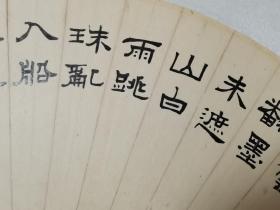 翻墨
未遮
山白
雨跳
珠亂
入船